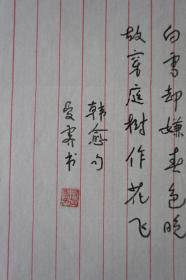 白雪却嫌春色晚
故穿庭树作花飞
韩愈句
曼霁书